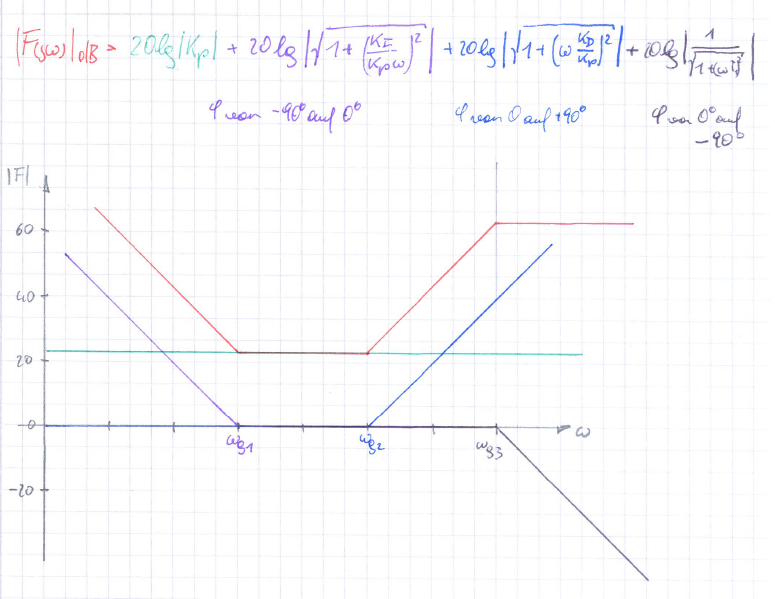 |F(jω)|dB = 20lg|Kp| + 20lg|√(1+(KI/(Kpω))²)| + 20lg|√(1+(ω KD/Kp)²)| + 20lg|1/√(1+(ωT)²)|
φ von -90° auf 0° φ von 0 auf +90° φ von 0° auf
-90°
|F|
60
40
20
0
ω
ωg1 ωg2 ωg3
-20